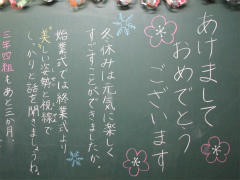 あけまして
おめでとう
ございます
冬休みは元気に楽しく
すごすことができましたか。
始業式では終業式より
美しい姿勢と視線で
しっかりと話を聞きましょうね。
三年四組もあと三か月。